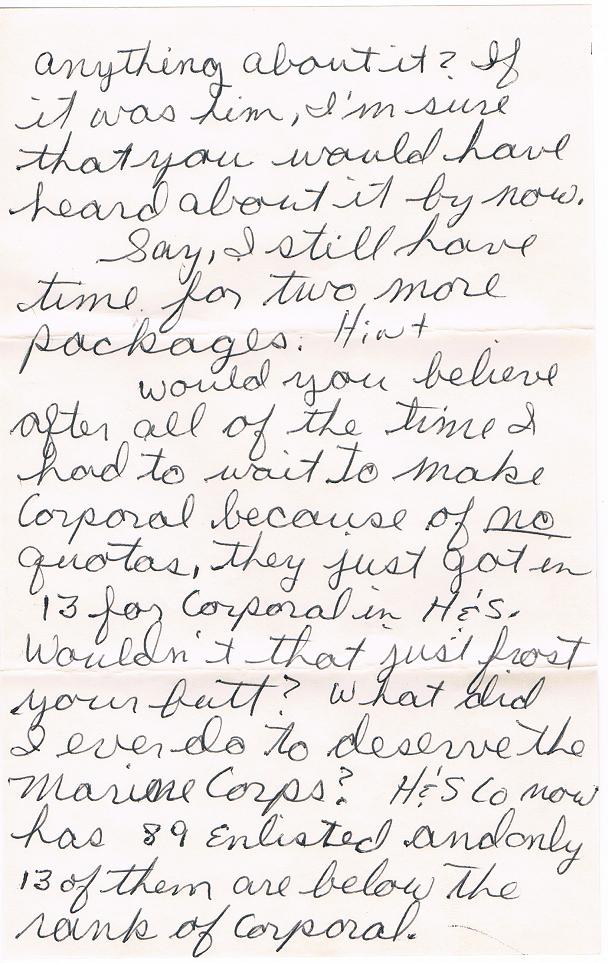 anything about it? If
it was him, I'm sure
that you would have
heard about it by now.
Say, I still have
time for two more
packages. Hint
would you believe
after all of the time I
had to wait to make
Corporal because of no
quotas, they just got in
13 for Corporal in H&S.
Wouldn't that just frost
your butt? What did
I ever do to deserve the
Marine Corps? H&S Co now
has 89 Enlisted and only
13 of them are below the
rank of Corporal.